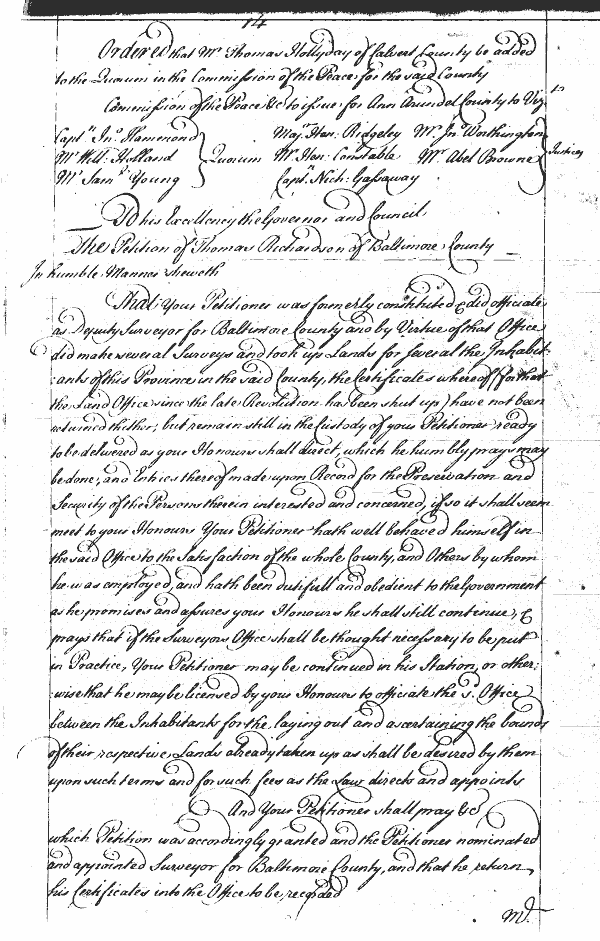 14
Ordered that Mr Thomas Hollyday of Calvert County be added
to the Quorum in the Commission of the Peace for the said County
Commission of the Peace &c to issue for Ann Arundel County to Vizt
Captn Jno Hammond Majr Hen: Ridgeley Mr Jno Worthington
Mr Will Holland Quorum Mr Hen: Constable Mr Abel Browne Justices
Mr Saml Young Captn Nich: Gassaway
To his Excellency the Governor and Council
The Petition of Thomas Richardson of Baltimore County
In humble Manner sheweth
That Your Petitioner was formerly constituted & did officiate
as Deputy Surveyor for Baltimore County and by Virtue of that Office
did make several Surveys and took up Lands for several the Inhabit
ants of this Province in the said County, the Certificates whereof (for that
the Land Office since the late Revolution has been shut up) have not been
returned thither, but remain still in the Custody of your Petitioner ready
to be delivered as your Honours shall direct, which he humbly prays may
be done, and Entries thereof made upon Record for the Preservation and
Security of the Persons therein interested and concerned, if so it shall seem
meet to your Honours Your Petitioner hath well behaved himself in
the said Office to the Satisfaction of the whole County, and Others by whom
he was employed, and hath been dutifull and obedient to the Government
as he promises and assures your Honours he shall still continue, &
prays that if the Surveyors Office shall be thought necessary to be put
in Practice, Your Petitioner may be continued in his Station, or other:
wise that he may be licensed by your Honours to officiate the sd. Office
between the Inhabitants for the laying out and ascertaining the bounds
of their respective Lands already taken up as shall be desired by them
upon such terms and for such fees as the Law directs and appoints
And Your Petitioner shall pray &c
which Petition was accordingly granted and the Petitioner nominated
and appointed Surveyor for Baltimore County, and that he return
his Certificates into the Office to be recorded